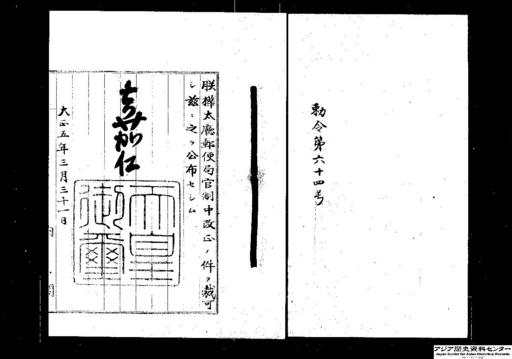 勅令第六十四号
朕樺太庁郵便局官制中改正ノ件ヲ裁可
シ茲ニ之ヲ公布セシム
嘉仁
天皇
御璽
大正五年三月三十一日
アジア歴史資料センター
Japan Center for Asian Historical Records